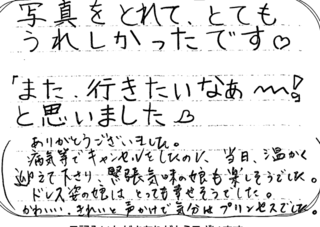 写真をとれて、とても
うれしかったです♡
「また、行きたいなぁ〜〜!」
と思いました
ありがとうございました。
病気等でキャンセルをしたのに、当日、温かく
迎えて下さり、緊張気味の娘も楽しそうでした。
ドレス姿の娘はとっても幸せそうでした。
かわいい、きれいと声かけで気分はプリンセスでした。